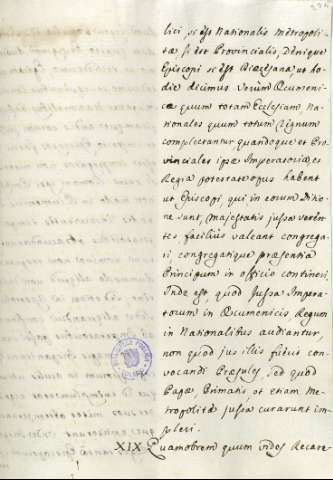 lici, si est Nationalis Metropoli-
tæ, si est Provincialis, Denique
Episcopi si est Diæcesana, ut ho-
die dicimus. Verum Œcumeni-
ca quum totam Ecclesiam, Na-
tionales quum totum Regnum
complectantur quandoque et Pro-
vinciales ipsæ Imperatoria, et
Regia potestate opus habent
ut Episcopi, qui in eorum Ditio-
ne sunt, Majestatis jussa veren-
tes facilius valeant congrega-
ri, congregatique præsentia
Principum in officio contineri.
Inde est, quod Jussa Impera-
torum in Œcumenicis, Regum
in Nationalibus audiantur,
non quod jus illis fuerit con-
vocandi Præsules, sed quod
Papæ, Primatis et etiam Me-
tropolitæ jussa curarunt im-
pleri.
XIX. Quamobrem quum videos Recare-